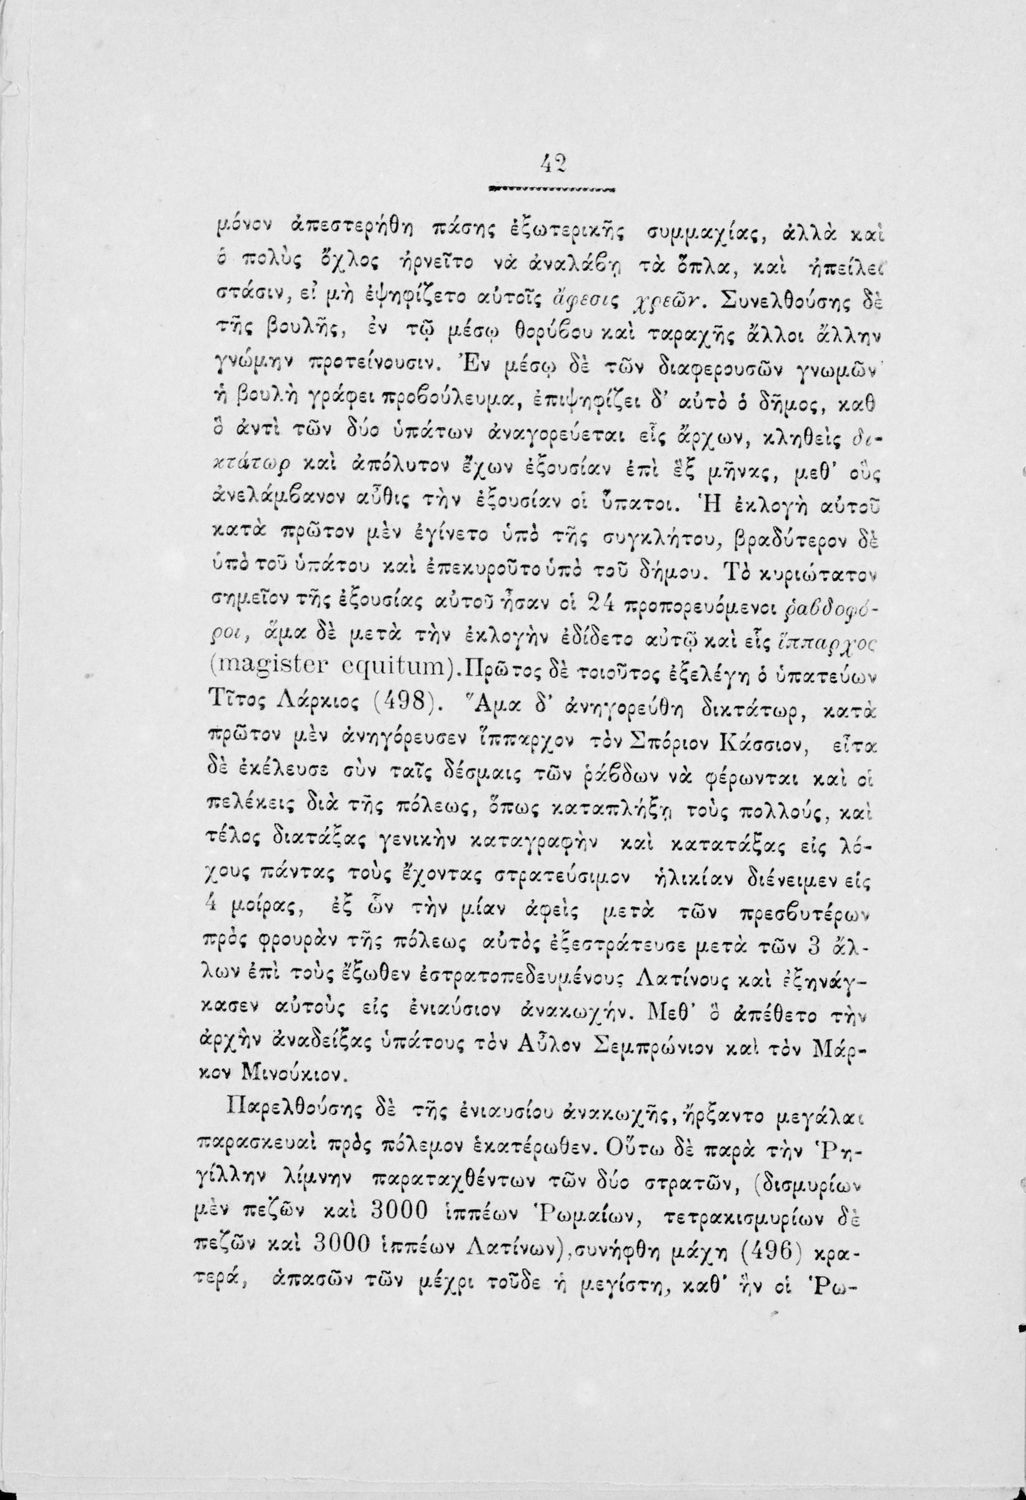 42
μόνον ἀπεστερήθη πάσης ἐξωτερικῆς συμμαχίας, ἀλλὰ καὶ
ὁ πολὺς ὄχλος ἠρνεῖτο νὰ ἀναλάβῃ τὰ ὅπλα, καὶ ἠπείλει
στάσιν, εἰ μὴ ἐψηφίζετο αὐτοῖς ἄφεσις χρεῶν. Συνελθούσης δὲ
τῆς βουλῆς, ἐν τῷ μέσῳ θορύβου καὶ ταραχῆς ἄλλοι ἄλλην
γνώμην προτείνουσιν. Ἐν μέσῳ δὲ τῶν διαφερουσῶν γνωμῶν
ἡ βουλὴ γράφει προβούλευμα, ἐπιψηφίζει δ’ αὐτὸ ὁ δῆμος, καθ
ὃ ἀντὶ τῶν δύο ὑπάτων ἀναγορεύεται εἷς ἄρχων, κληθεὶς δι-
κτάτωρ καὶ ἀπόλυτον ἔχων ἐξουσίαν ἐπὶ ἓξ μῆνας, μεθ’ οὓς
ἀνελάμβανον αὖθις τὴν ἐξουσίαν οἱ ὕπατοι. Ἡ ἐκλογὴ αὐτοῦ
κατὰ πρῶτον μὲν ἐγίνετο ὑπὸ τῆς συγκλήτου, βραδύτερον δὲ
ὑπὸ τοῦ ὑπάτου καὶ ἐπεκυροῦτο ὑπὸ τοῦ δήμου. Τὸ κυριώτατον
σημεῖον τῆς ἐξουσίας αὐτοῦ ἦσαν οἱ 24 προπορευόμενοι ῥαβδοφό-
ροι, ἅμα δὲ μετὰ τὴν ἐκλογὴν ἐδίδετο αὐτῷ καὶ εἷς ἵππαρχος
(magister equitum). Πρῶτος δὲ τοιοῦτος ἐξελέγη ὁ ὑπατεύων
Τῖτος Λάρκιος (498). Ἅμα δ’ ἀνηγορεύθη δικτάτωρ, κατὰ
πρῶτον μὲν ἀνηγόρευσεν ἵππαρχον τὸν Σπόριον Κάσσιον, εἶτα
δὲ ἐκέλευσε σὺν ταῖς δέσμαις τῶν ῥάβδων νὰ φέρωνται καὶ οἱ
πελέκεις διὰ τῆς πόλεως, ὅπως καταπλήξῃ τοὺς πολλούς, καὶ
τέλος διατάξας γενικὴν καταγραφὴν καὶ κατατάξας εἰς λό-
χους πάντας τοὺς ἔχοντας στρατεύσιμον ἡλικίαν διένειμεν εἰς
4 μοίρας, ἐξ ὧν τὴν μίαν ἀφεὶς μετὰ τῶν πρεσβυτέρων
πρὸς φρουρὰν τῆς πόλεως αὐτὸς ἐξεστράτευσε μετὰ τῶν 3 ἄλ-
λων ἐπὶ τοὺς ἔξωθεν ἐστρατοπεδευμένους Λατίνους καὶ ἐξηνάγ-
κασεν αὐτοὺς εἰς ἐνιαύσιον ἀνακωχήν. Μεθ’ ὃ ἀπέθετο τὴν
ἀρχὴν ἀναδείξας ὑπάτους τὸν Αὖλον Σεμπρώνιον καὶ τὸν Μάρ-
κον Μινούκιον.
Παρελθούσης δὲ τῆς ἐνιαυσίου ἀνακωχῆς, ἤρξαντο μεγάλαι
παρασκευαὶ πρὸς πόλεμον ἑκατέρωθεν. Οὕτω δὲ παρὰ τὴν Ῥη-
γίλλην λίμνην παραταχθέντων τῶν δύο στρατῶν, (δισμυρίων
μὲν πεζῶν καὶ 3000 ἱππέων Ῥωμαίων, τετρακισμυρίων δὲ
πεζῶν καὶ 3000 ἱππέων Λατίνων), συνήφθη μάχη (496) κρα-
τερά, ἁπασῶν τῶν μέχρι τοῦδε ἡ μεγίστη, καθ’ ἣν οἱ Ῥω-